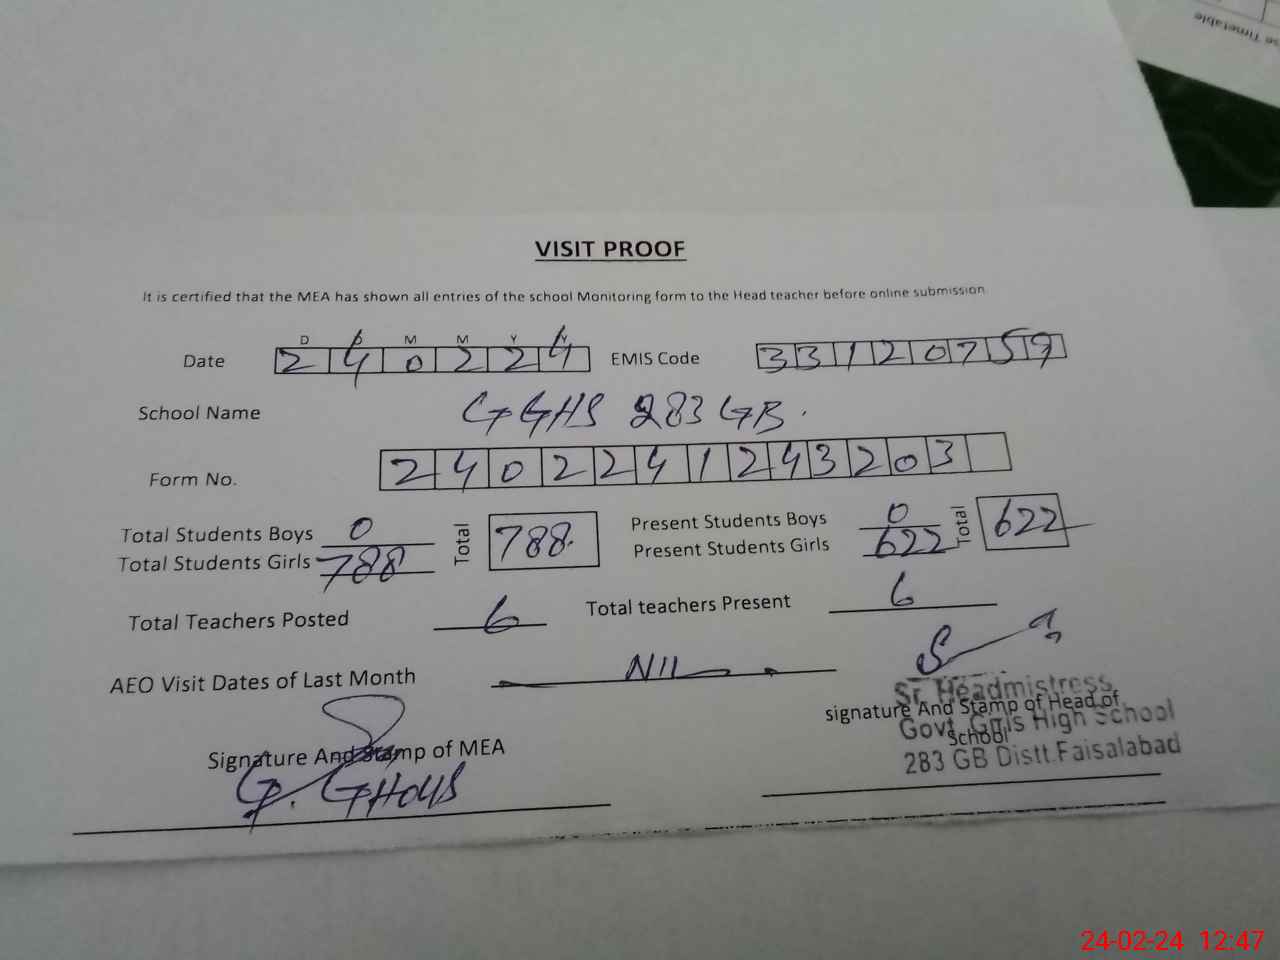 se Timetable
VISIT PROOF
It is certified that the MEA has shown all entries of the school Monitoring form to the Head teacher before online submission.
D D M M Y Y
Date 2 4 0 2 2 4 EMIS Code 3 3 1 2 0 7 5 9
School Name G GHS 283 GB.
Form No. 2 4 0 2 2 4 1 2 4 3 2 0 3
Total Students Boys 0 Total 788 Present Students Boys 0 Total 622
Total Students Girls 788 Present Students Girls 622
Total Teachers Posted 6 Total teachers Present 6
AEO Visit Dates of Last Month NIL
Sr. Headmistress
signature And Stamp of Head of School
Govt. Girls High School
283 GB Distt.Faisalabad
Signature And Stamp of MEA
24-02-24 12:47